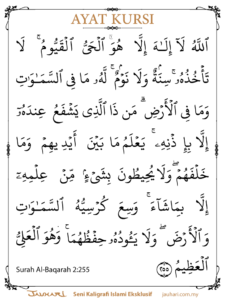 AYAT KURSI
ٱللَّهُ لَآ إِلَـٰهَ إِلَّا هُوَ ٱلْحَىُّ ٱلْقَيُّومُ ۚ لَا
تَأْخُذُهُۥ سِنَةٌ وَلَا نَوْمٌ ۚ لَّهُۥ مَا فِى ٱلسَّمَـٰوَٰتِ
وَمَا فِى ٱلْأَرْضِ ۗ مَن ذَا ٱلَّذِى يَشْفَعُ عِندَهُۥٓ
إِلَّا بِإِذْنِهِۦ ۚ يَعْلَمُ مَا بَيْنَ أَيْدِيهِمْ وَمَا
خَلْفَهُمْ ۖ وَلَا يُحِيطُونَ بِشَىْءٍ مِّنْ عِلْمِهِۦٓ
إِلَّا بِمَا شَآءَ ۚ وَسِعَ كُرْسِيُّهُ ٱلسَّمَـٰوَٰتِ
وَٱلْأَرْضَ ۖ وَلَا يَـُٔودُهُۥ حِفْظُهُمَا ۚ وَهُوَ ٱلْعَلِىُّ
ٱلْعَظِيمُ ٢٥٥
Surah Al-Baqarah 2:255
JAUHARI Seni Kaligrafi Islami Eksklusif jauhari.com.my